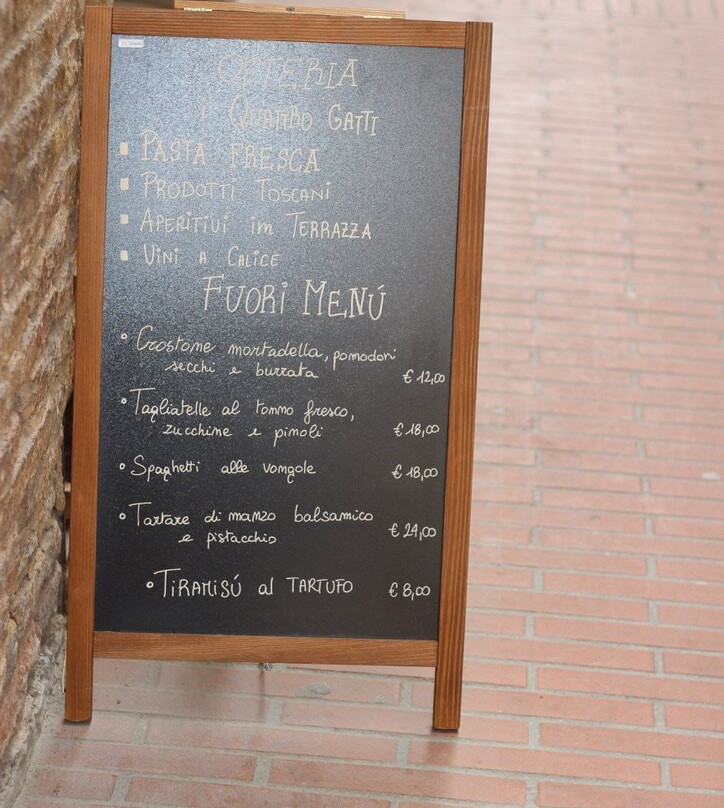 OSTERIA
i QUATTRO GATTI
PASTA FRESCA
PRODOTTI TOSCANI
APERITIVI in TERRAZZA
VINI A CALICE
FUORI MENÚ
Crostone mortadella, pomodori
secchi e burrata
€ 12,00
Tagliatelle al tonno fresco,
zucchine e pinoli
€ 18,00
Spaghetti alle vongole € 18,00
Tartare di manzo balsamico
e pistacchio
€ 24,00
TIRAMISÚ al TARTUFO € 8,00